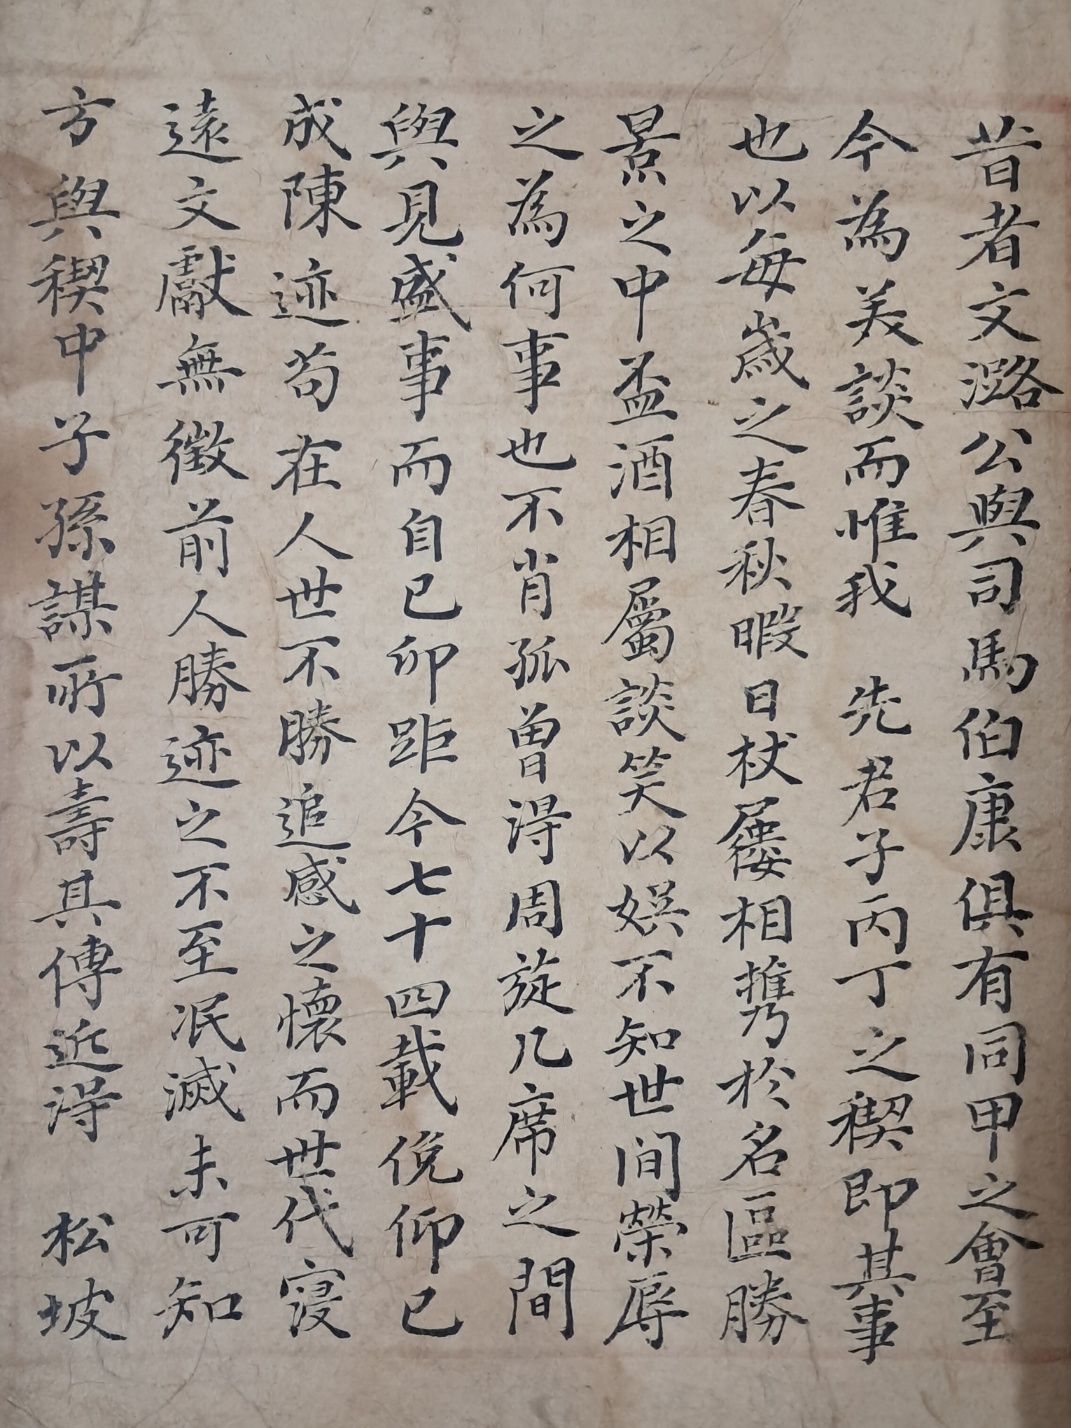 昔者文潞公與司馬伯康俱有同甲之會至
今為美談而惟我 先君子丙丁之稧即其事
也以每歲之春秋暇日杖屨相攜於名區勝
景之中盃酒相屬談笑以娛不知世间榮辱
之為何事也不肖孤曾得周旋几席之間
與見盛事而自已卯距今七十四載俛仰已
成陳迹苟在人世不勝追感之懷而世代寖
遠文獻無徵前人勝迹之不至泯滅未可知
方與稧中子孫謀所以壽其傳近得 松坡